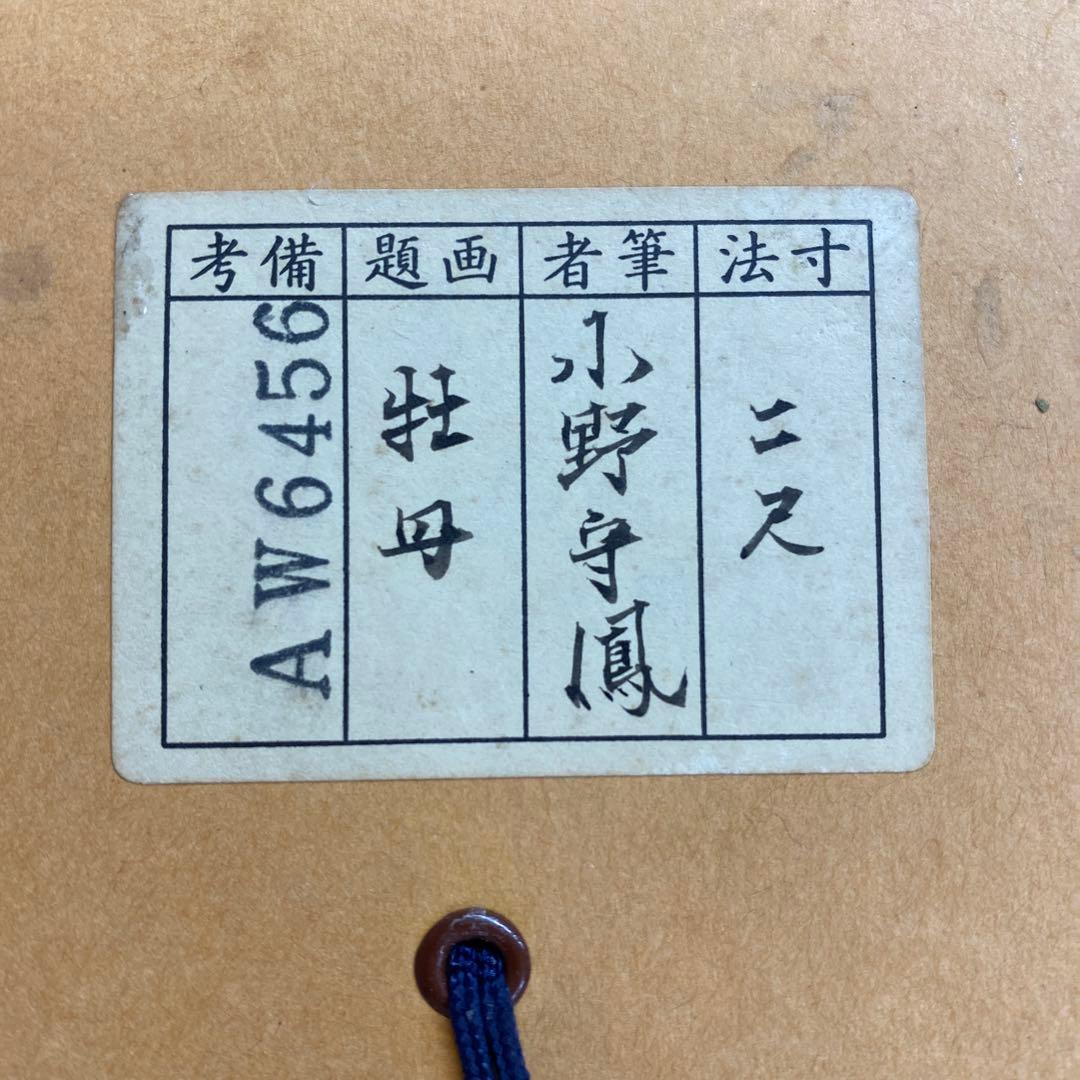 寸法
二尺
筆者
小野守鳳
画題
牡丹
備考
AW6456